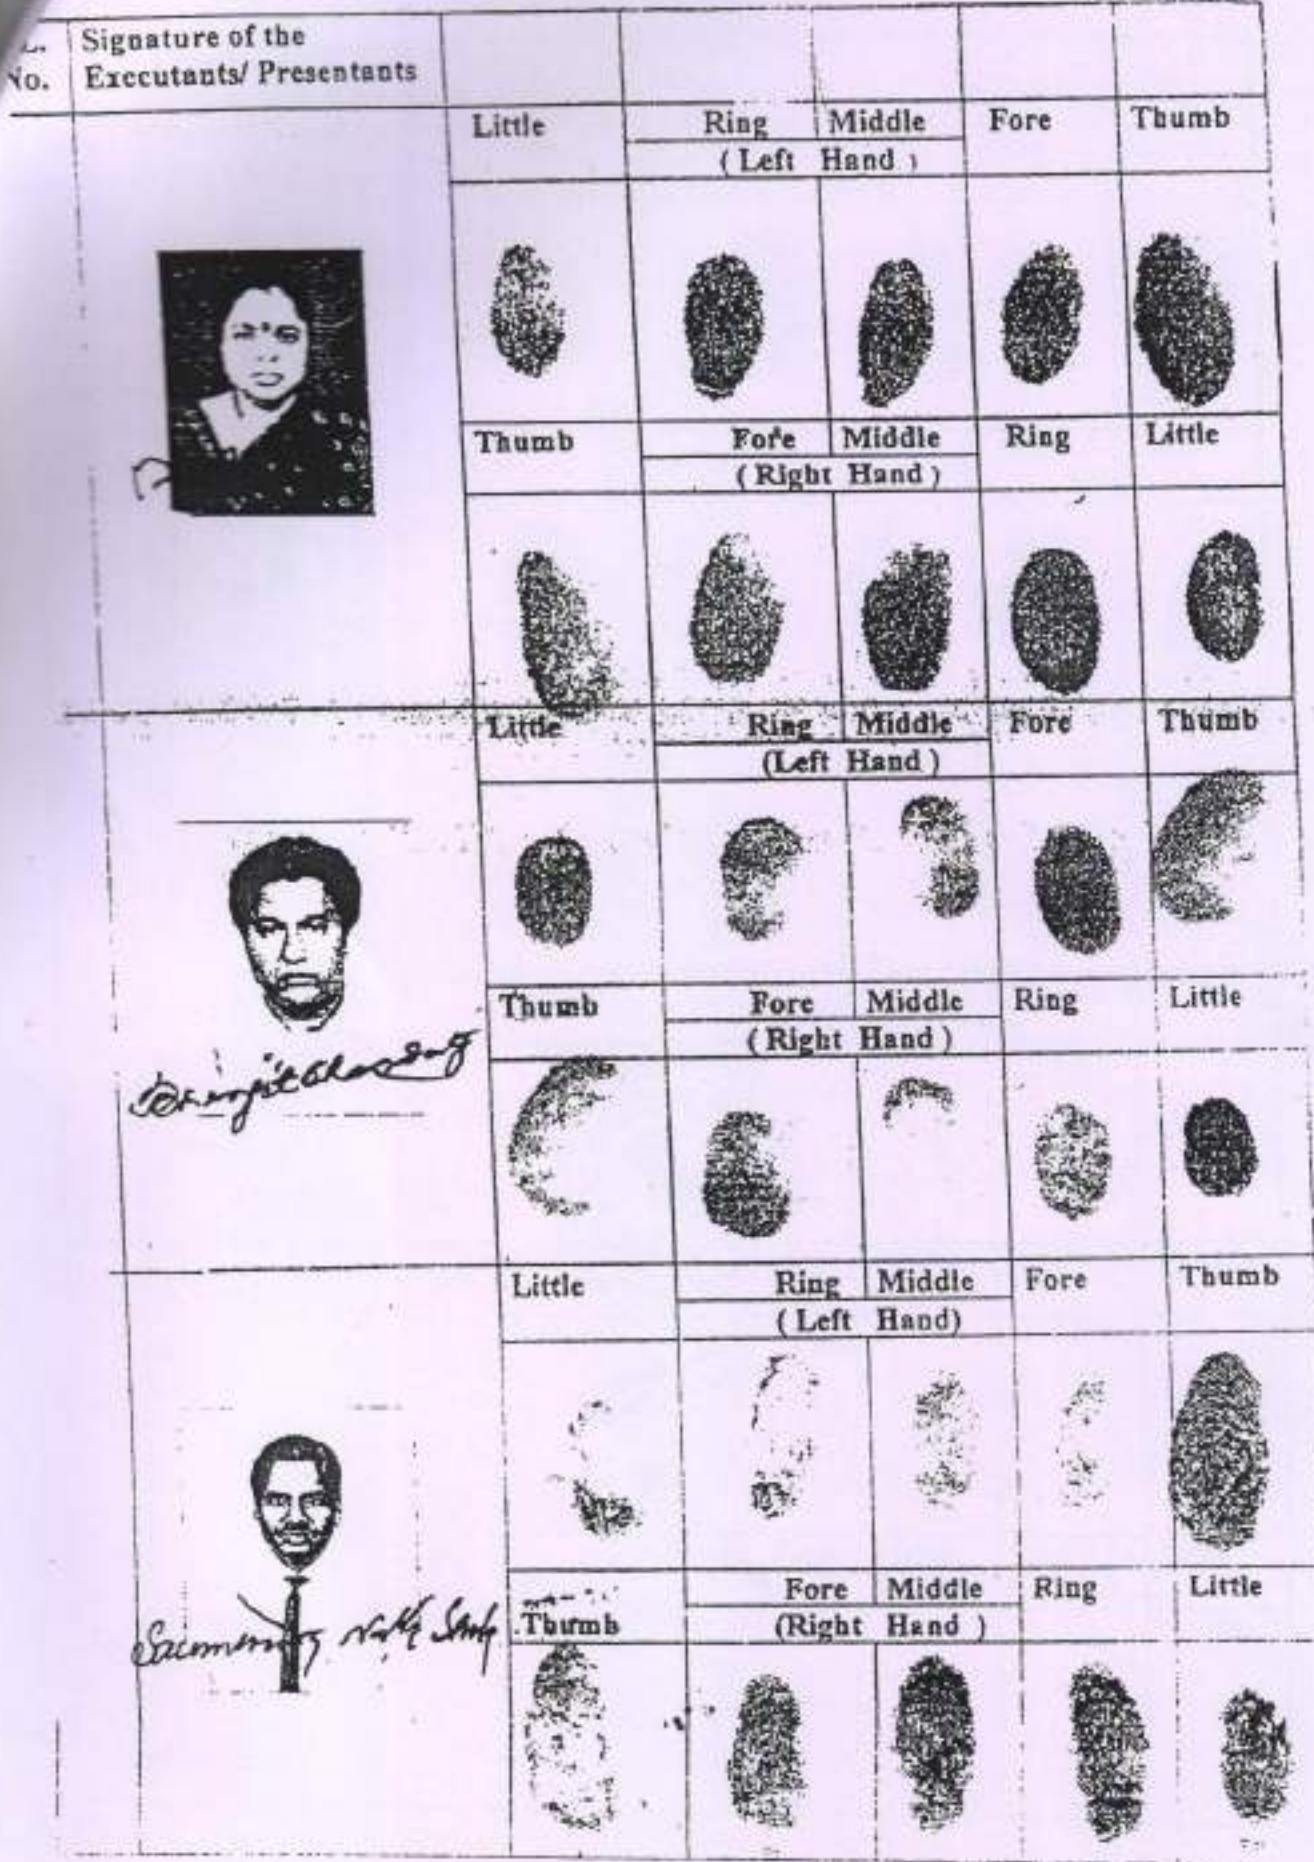 No. Signature of the
Executants/ Presentants
Little Ring Middle Fore Thumb
(Left Hand)
Thumb Fore Middle Ring Little
(Right Hand)
Little Ring Middle Fore Thumb
(Left Hand)
Thumb Fore Middle Ring Little
(Right Hand)
Little Ring Middle Fore Thumb
(Left Hand)
Thumb Fore Middle Ring Little
(Right Hand)